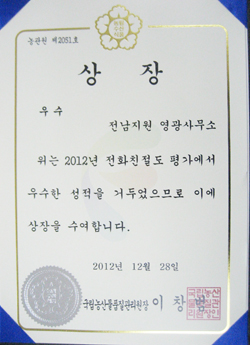 농관원 제2051호
상 장
우 수
전남지원 영광사무소
위는 2012년 전화친절도 평가에서
우수한 성적을 거두었으므로 이에
상장을 수여합니다.
2012년 12월 28일
국립농산물품질관리원장 이 창 범